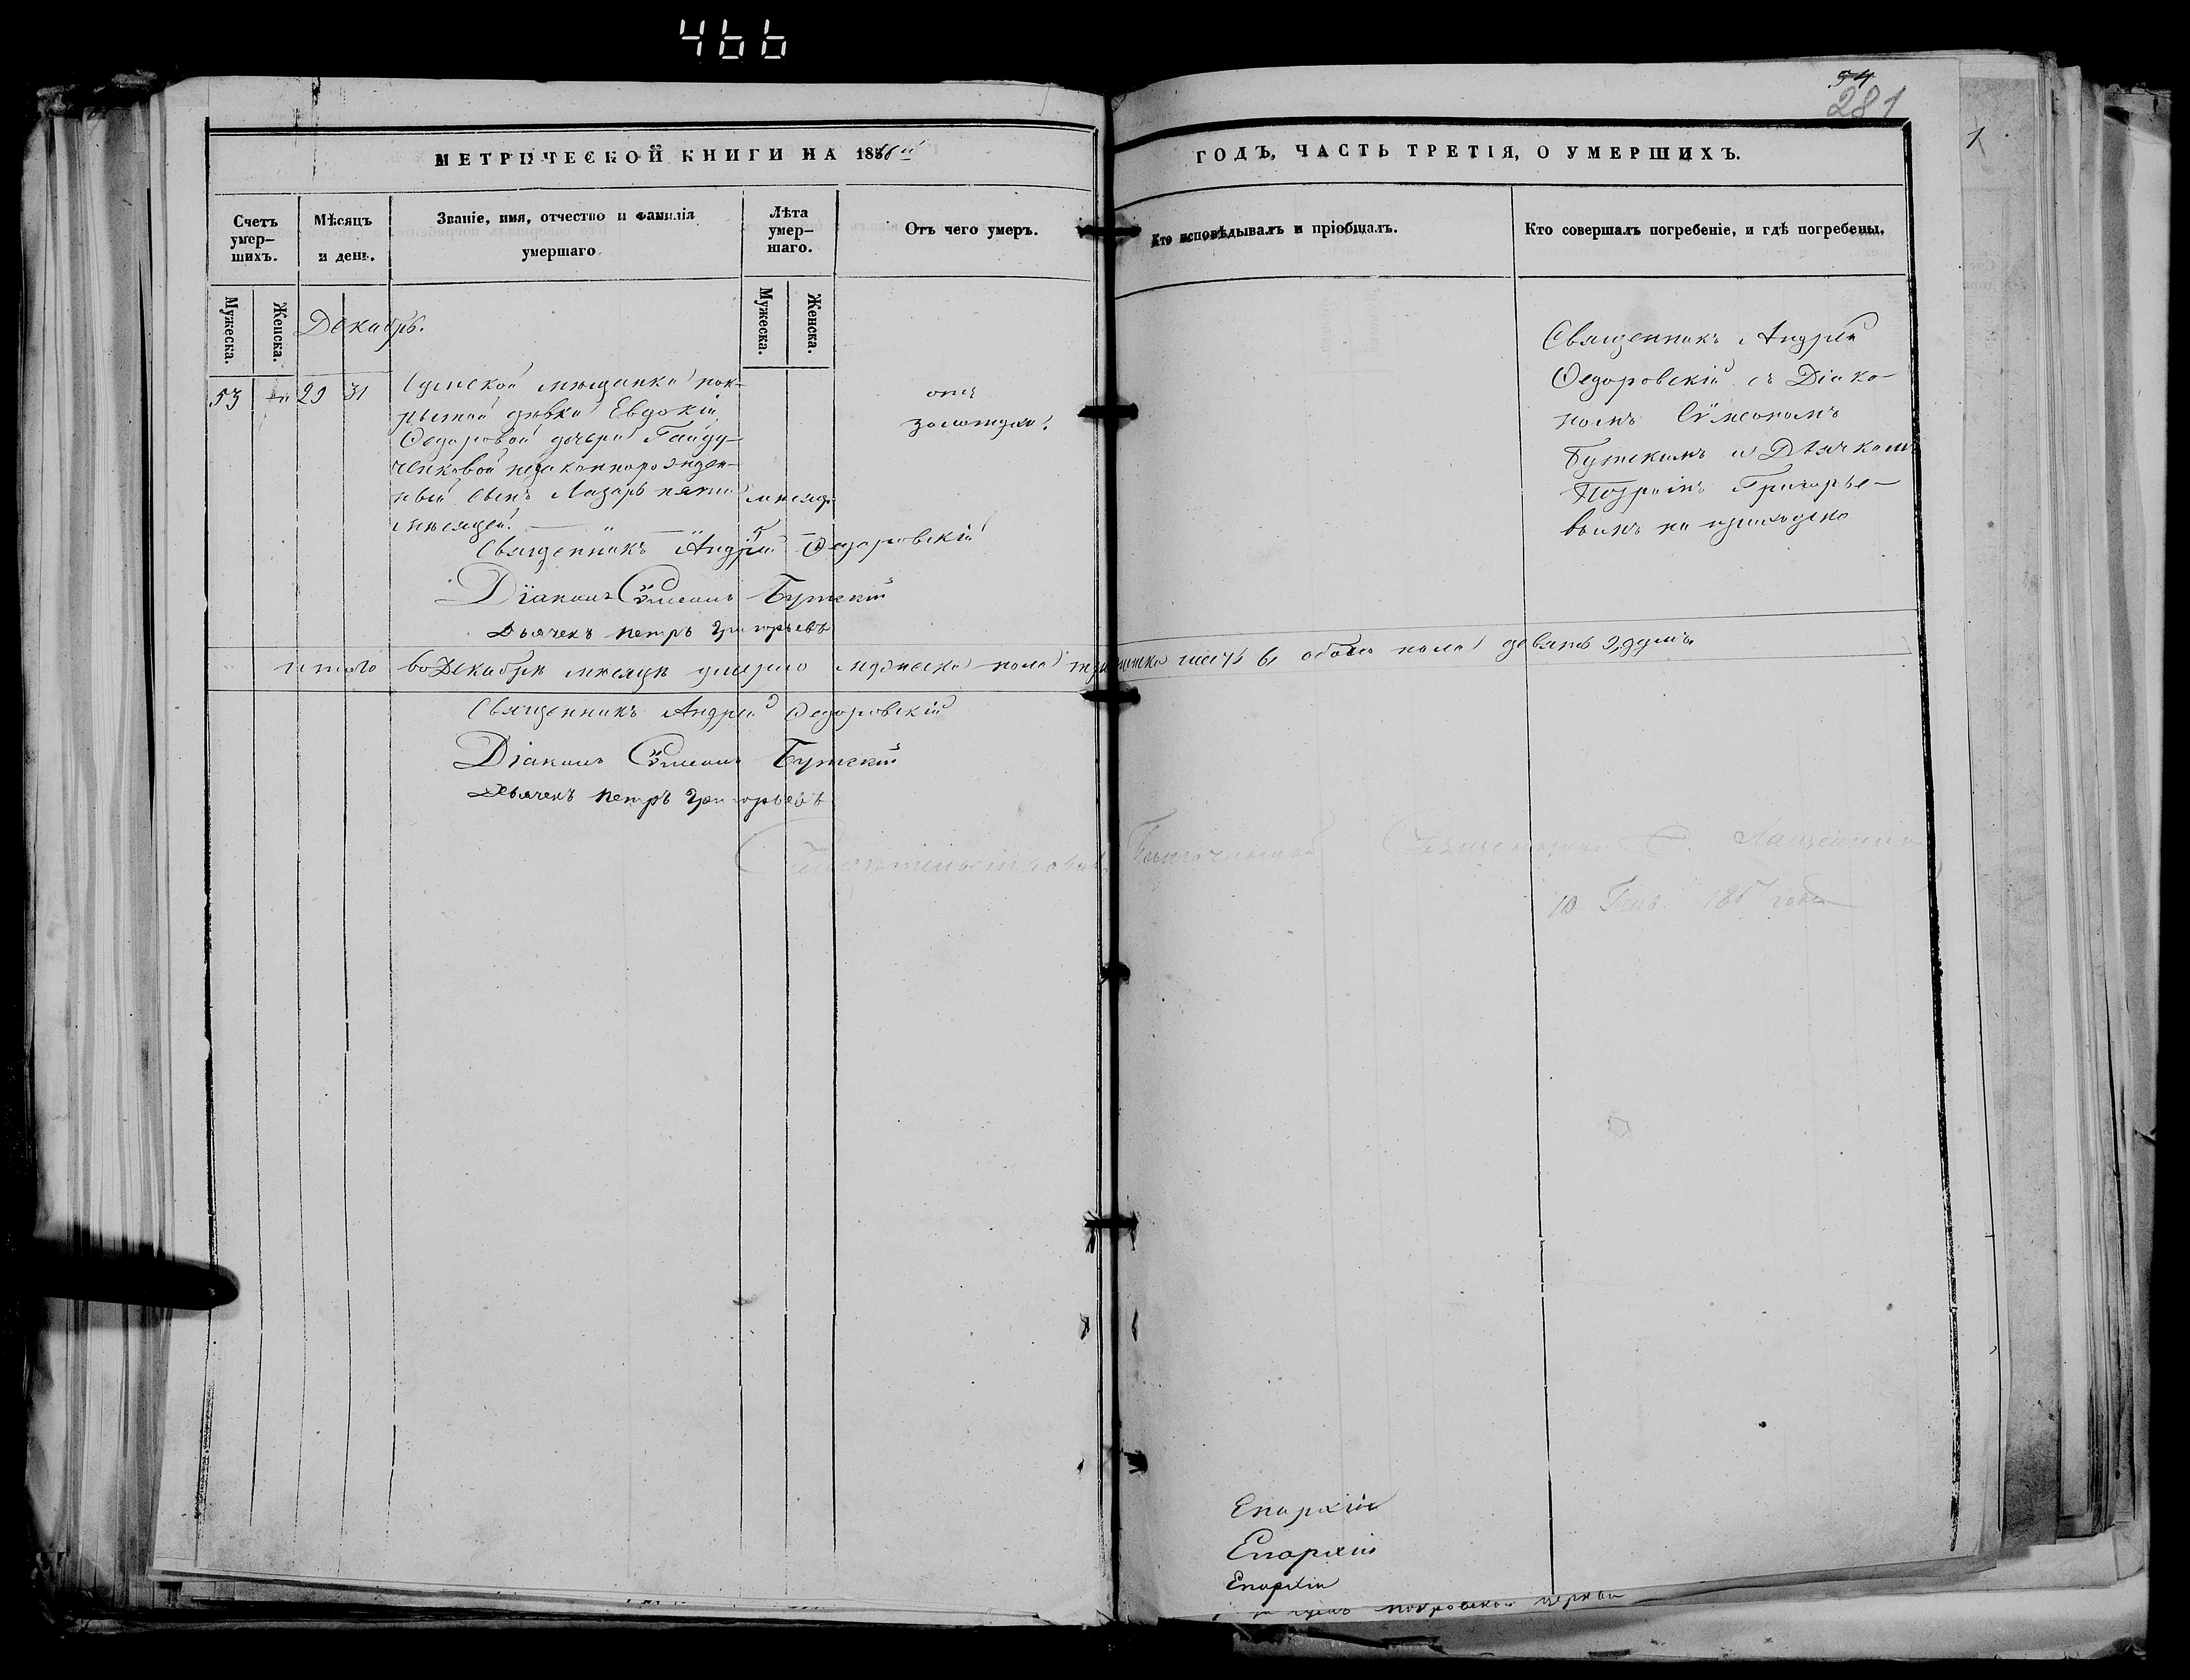 466
54
281
МЕТРИЧЕСКОЙ КНИГИ НА 1856й
ГОДЪ, ЧАСТЬ ТРЕТІЯ, О УМЕРШИХЪ.
Счетъ умер-
шихъ.
Мѣсяцъ
и день.
Званіе, имя, отчество и фамилія
умершаго
Лѣта
умер-
шаго.
Отъ чего умеръ.
Кто исповѣдывалъ и пріобщалъ.
Кто совершалъ погребеніе, и гдѣ погребены.
Мужеска.
Женска.
Мужеска.
Женска.
Декабрь.
53
29 31
Сумской мѣщанки пок-
рытой дѣвки Евдокіи
Федоровой дочери Гайду-
ченковой незаконнорожден-
ный сынъ Лазарь пяти
мѣсяцей.
мѣсяц.
5
отъ
золотухи.
Священникъ Андрей
Федоровскій съ Діако-
номъ Сѵмеономъ
Бутскимъ и Дьячкомъ
Петромъ Григорье-
вымъ на приходско
Священникъ Андрей Федоровскій
Діаконъ Сѵмеонъ Бутскій
Дьячекъ Петръ Григорьевъ
итого во Декабрѣ мѣсяцѣ умерло мужеска пола женска обоего пола девять душъ.
Священникъ Андрей Федоровскій
Діаконъ Сѵмеонъ Бутскій
Дьячекъ Петръ Григорьевъ
Свидѣтельствовалъ Благочинный Священникъ
10 Генв. 1857 года
Епархіи
Епархіи
Епархіи
Покровской церкви
1